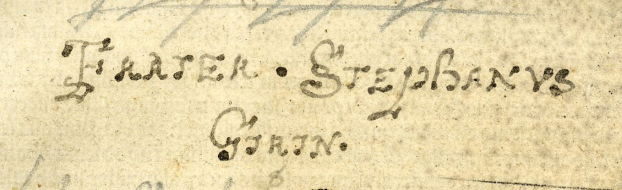 FRATER · STEPHANVS
GIRIN.